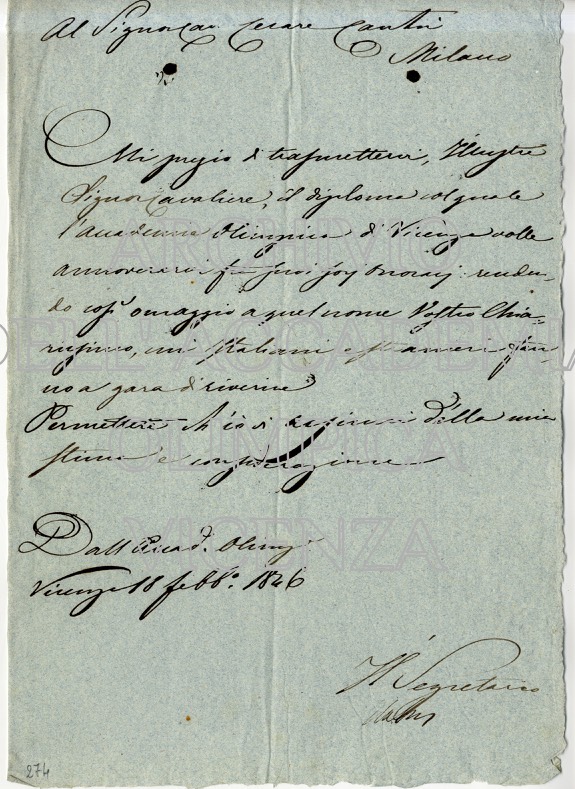 Al Signor Cav. Cesare Cantù
Milano
Mi pregio di trasmettervi, Illustre
Signor Cavaliere, il diploma col quale
l'Accademia Olimpica di Vicenza volle
annoverarvi fra suoi socj onorarj renden-
do così omaggio a quel nome Vostro Chia-
rissimo, cui Italiani e stranieri fan-
no a gara di riverire
Permettete ch'io vi rassicuri della mia
stima e considerazione
Dall'Accad. Olimp.
Vicenza 18 febb.o 1846
Il Segretario
274
ARCHIVIO
DELL'ACCADEMIA
OLIMPICA
VICENZA